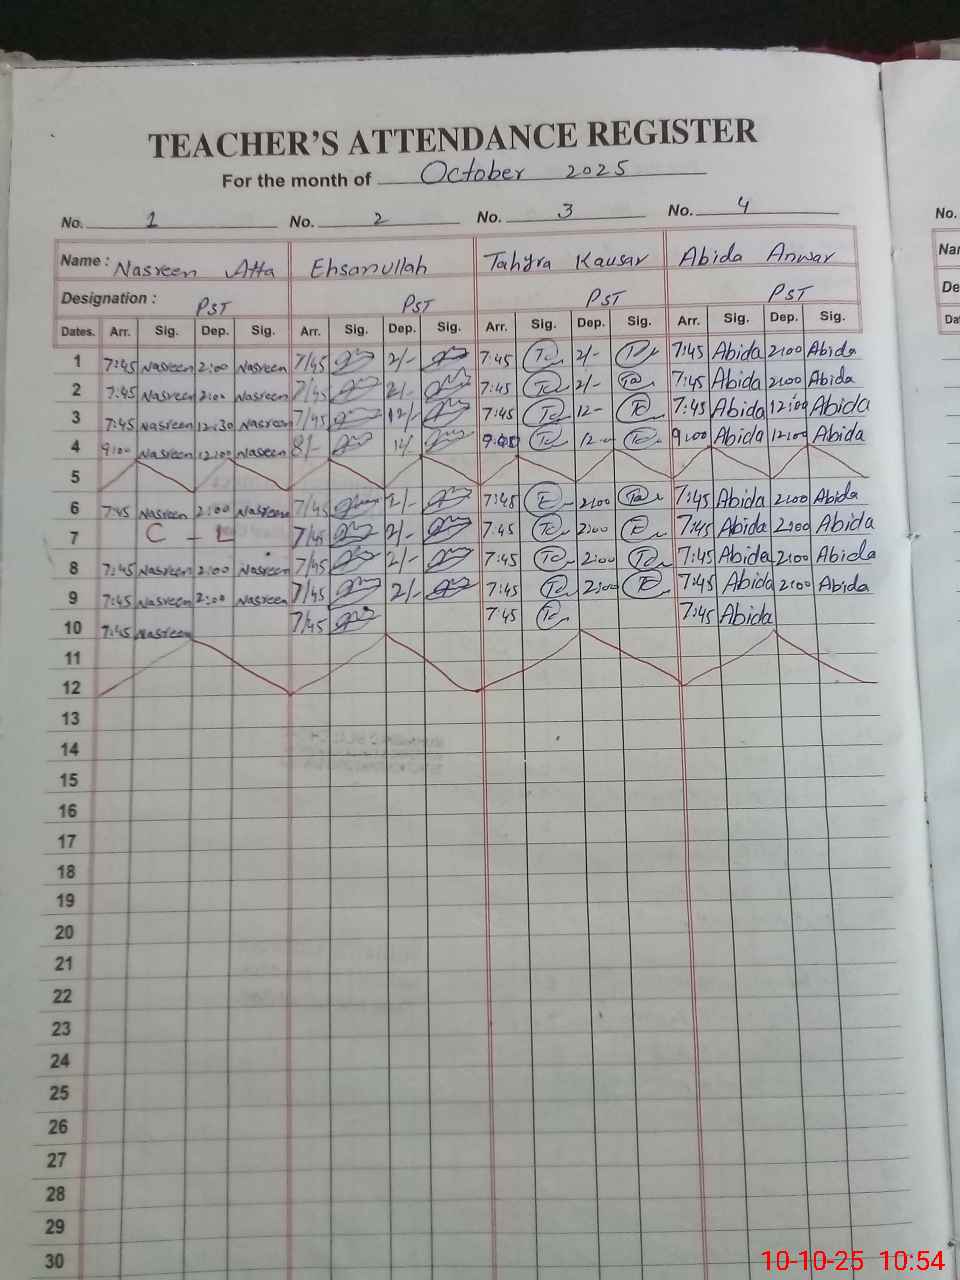 TEACHER'S ATTENDANCE REGISTER
For the month of October 2025
No. 1 No. 2 No. 3 No. 4 No.
Name : Nasreen Atta Ehsanullah Tahyra Kausar Abida Anwar Nar
Designation : PST PST PST PST De
Dates. Arr. Sig. Dep. Sig. Arr. Sig. Dep. Sig. Arr. Sig. Dep. Sig. Arr. Sig. Dep. Sig. Da
1 7:45 Nasreen 2:00 Nasreen 7/45 2/- 7:45 Tc 2/- Tc 7:45 Abida 2:00 Abida
2 7:45 Nasreen 2:00 Nasreen 7/45 2/- 7:45 Tc 2/- Tc 7:45 Abida 2:00 Abida
3 7:45 Nasreen 12:30 Nasreen 7/45 12/- 7:45 Tc 12- Tc 7:45 Abida 12:00 Abida
4 9:00 Nasreen 12:00 Nasreen 8/- Tc Tc 9:00 Abida 12:00 Abida
5
6 7:45 Nasreen 2:00 Nasreen 7/45 2/- 7:45 Tc 2:00 Tc 7:45 Abida 2:00 Abida
7 C - L 7/45 2/- 7:45 Tc 2:00 Tc 7:45 Abida 2:00 Abida
8 7:45 Nasreen 2:00 Nasreen 7/45 2/- 7:45 Tc 2:00 Tc 7:45 Abida 2:00 Abida
9 7:45 Nasreen 2:00 Nasreen 7/45 2/- 7:45 Tc 2:00 Tc 7:45 Abida 2:00 Abida
10 7:45 Nasreen 7/45 7:45 Tc 7:45 Abida
11
12
13
14
15
16
17
18
19
20
21
22
23
24
25
26
27
28
29
30
10-10-25 10:54